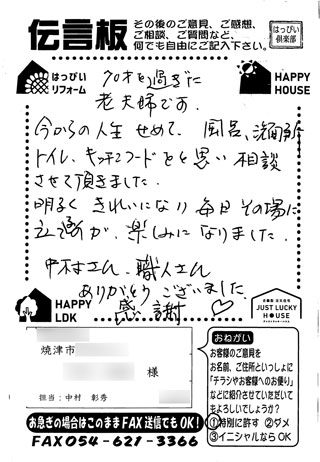 伝言板
その後のご意見、ご感想、
ご相談、ご質問など、
何でも自由にご記入下さい。
はっぴぃ
倶楽部
はっぴぃ
リフォーム
HAPPY
HOUSE
70才を過ぎた
老夫婦です。
今からの人生 せめて、風呂、洗面所
トイレ、キッチンフードをと思い 相談
させて頂きました。
明るく きれいになり 毎日 その場に
立つ事が、楽しみになりました。
中村さん、職人さん
ありがとうございました。
感謝♡
HAPPY
LDK
JUST LUCKY
HOUSE
焼津市
様
担当：中村 彰秀
おねがい
お客様のご意見を
お名前、ご住所といっしょに
「チラシやお客様へのお便り」
などに紹介させていただいて
もよろしいでしょうか？
①特別に許す ②ダメ
③イニシャルなら OK
お急ぎの場合はこのままFAX送信でもOK！
FAX 054-621-3366